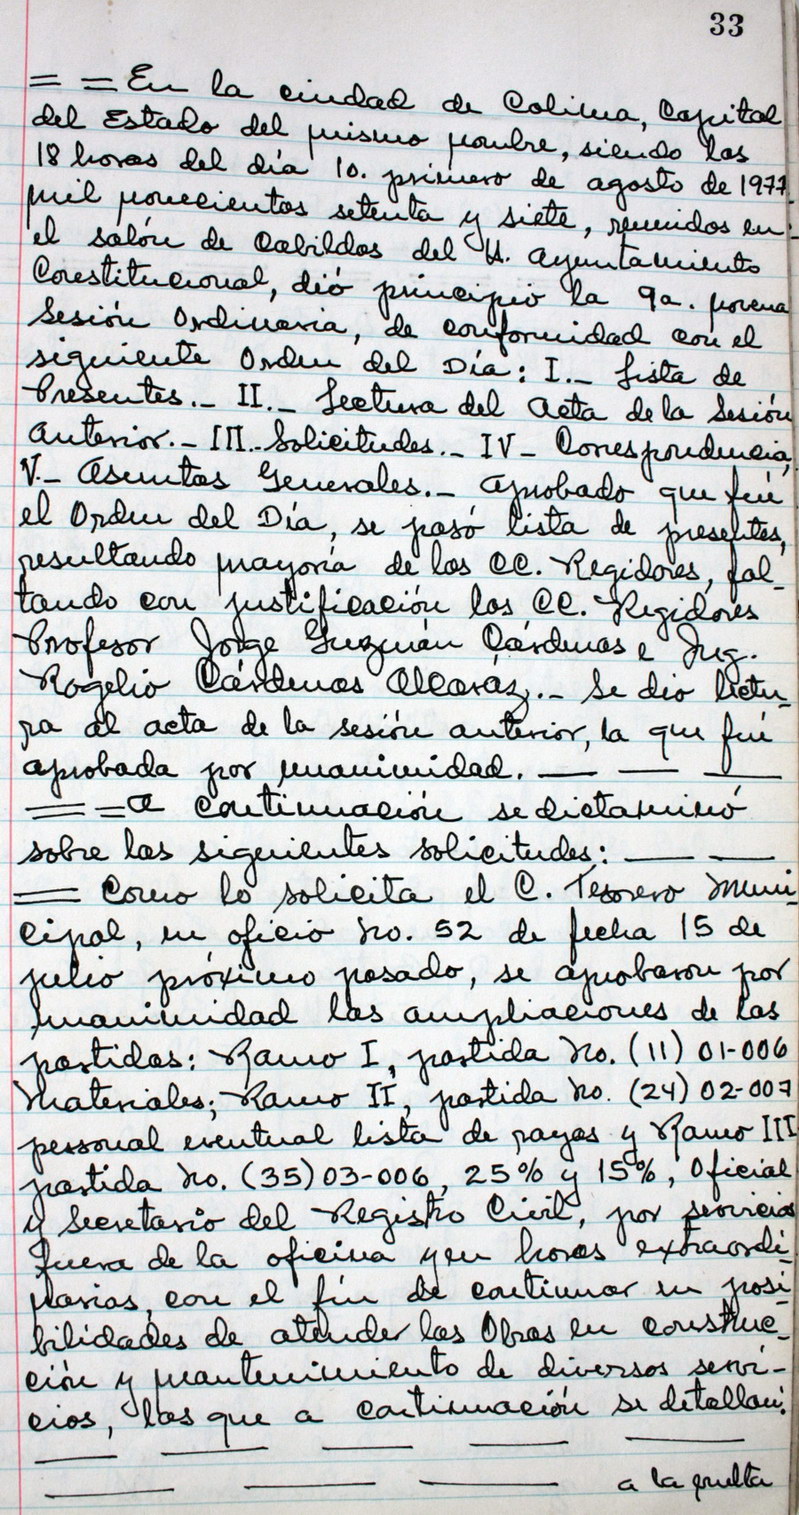 33
= = En la ciudad de Colima, Capital
del Estado del mismo nombre, siendo las
18 horas del día 1o. primero de agosto de 1977
mil novecientos setenta y siete, reunidos en
el salón de Cabildos del H. Ayuntamiento
Constitucional, dió principio la 9a. novena
Sesión Ordinaria, de conformidad con el
siguiente Orden del Día: I.- Lista de
Presentes.- II.- Lectura del Acta de la Sesión
Anterior.- III.- Solicitudes.- IV- Correspondencia,
V.- Asuntos Generales.- Aprobado que fué
el Orden del Día, se pasó lista de presentes,
resultando mayoría de los CC. Regidores, fal-
tando con justificación los CC. Regidores
Profesor Jorge Guzmán Cárdenas e Ing.
Rogelio Cárdenas Alcaraz.- Se dio lectu-
ra al acta de la sesión anterior, la que fué
aprobada por unanimidad. — — —
= = A continuación se dictaminó
sobre las siguientes solicitudes: — —
= Como lo solicita el C. Tesorero Muni-
cipal, en oficio No. 52 de fecha 15 de
julio próximo pasado, se aprobaron por
unanimidad las ampliaciones de las
partidas: Ramo I, partida No. (11) 01-006
Materiales; Ramo II, partida No. (24) 02-007
personal eventual lista de rayas y Ramo III
partida No. (35) 03-006, 25% y 15%, Oficial
y Secretario del Registro Civil, por servicios
fuera de la oficina y en horas extraordi-
narias, con el fin de continuar en posi-
bilidades de atender las Obras en construc-
ción y mantenimiento de diversos servi-
cios, las que a continuación se detallan:
— — — — —
— — — a la vuelta